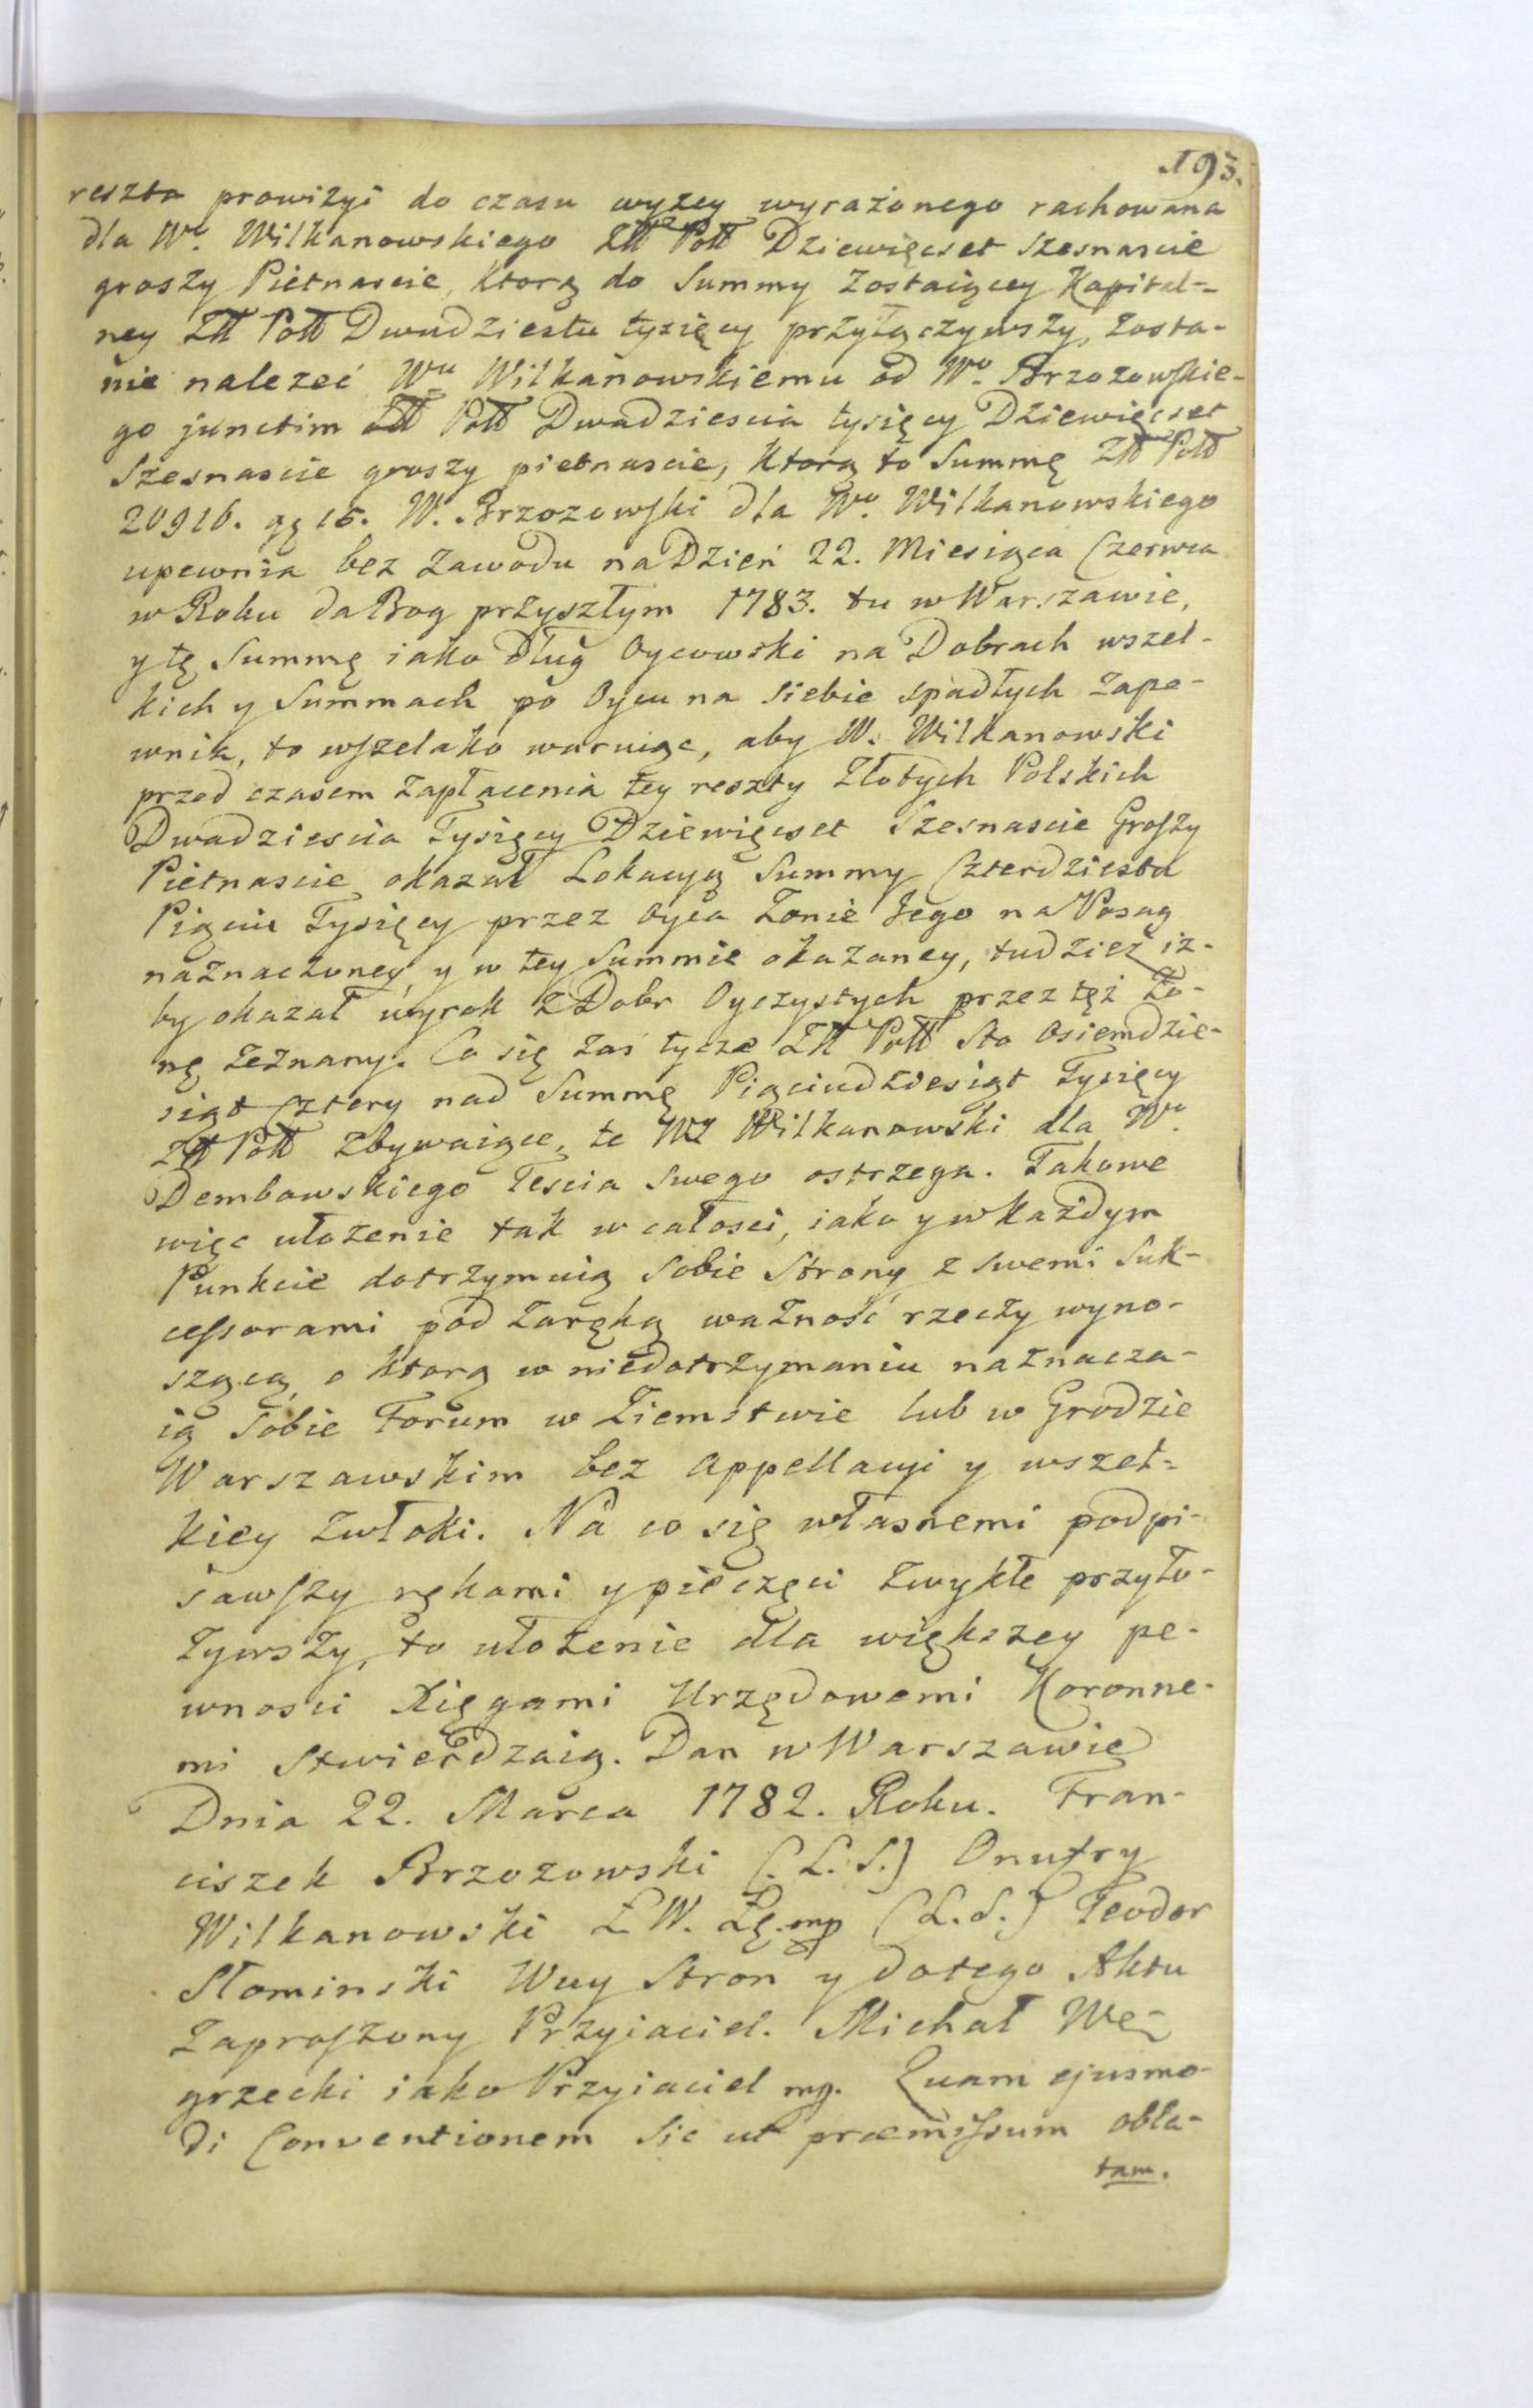 193.
reszta prowizyi do czasu wyzey wyrażonego rachowana
dla Wo. Wilkanowskiego Ztt Pott Dziewięcset szesnascie
groszy Pietnascie, ktorą do Summy zostaiącey Kapital-
ney Ztt Pott Dwudziestu tysięcy przyłączywszy, zosta-
nie nalezeć Wu Wilkanowskiemu od Wo. Brzozowskie-
go junctim Ztt Pott Dwadziescia tysięcy Dziewięcset
Szesnascie groszy pietnascie, ktorą to Summę Ztt Pott
20916. gę 15. W. Brzozowski dla Wo. Wilkanowskiego
upewnia bez zawodu na Dzień 22. Miesiąca Czerwca
w Roku da Bog przyszłym 1783. tu w Warszawie,
y tę Summę iako Dług Oycowski na Dobrach wszel-
kich y Summach po Oycu na siebie spadłych zape-
wnia, to wszelako waruiąc, aby W. Wilkanowski
przed czasem zapłacenia tey reszty Złotych Polskich
Dwadziescia Tysięcy Dziewięcset Szesnascie Groszy
Pietnascie okazał Lokacyą Summy Czterdziestu
Piąciu Tysięcy przez Oyca Zonie Jego na Posag
naznaczoney, y w tey Summie okazaney, tudziez iz-
by okazał wyrok z Dobr Oyczystych przez tęż Żo-
nę zeznany. Co się zas tycze Ztt Pott Sto Osiemdzie-
siąt Cztery nad Summę Piąciudziesiąt Tysięcy
Ztt Pott zbywaiące, te WJ Wilkanowski dla Wo
Dembowskiego Tescia swego ostrzega. Takowe
więc ułozenie tak w całosci, iako y w każdym
Punkcie dotrzymuią sobie Strony z swemi Suk-
cessorami pod zaręką ważność rzeczy wyno-
szącą, o ktorą w niedotrzymaniu naznacza-
ią sobie Forum w Ziemstwie lub w Grodzie
Warszawskim bez Appellacyi y wszel-
kiey zwłoki. Na co się własnemi podpi-
sawszy rękami y pieczęci zwykłe przyło-
żywszy, to ułożenie dla większey pe-
wnosci Xięgami Urzędowemi Koronne-
mi stwierdzaią. Dan w Warszawie
Dnia 22. Marca 1782. Roku. Fran-
ciszek Brzozowski (L. S.) Onufry
Wilkanowski Ł W. Łę. mp (L. S.) Teodor
Słominski Wuy Stron y do tego Aktu
zaproszony Przyiaciel. Michał Wę-
grzecki iako Przyiaciel mp. Quam ejusmo-
di Conventionem sic ut præmissum obla-
tam.